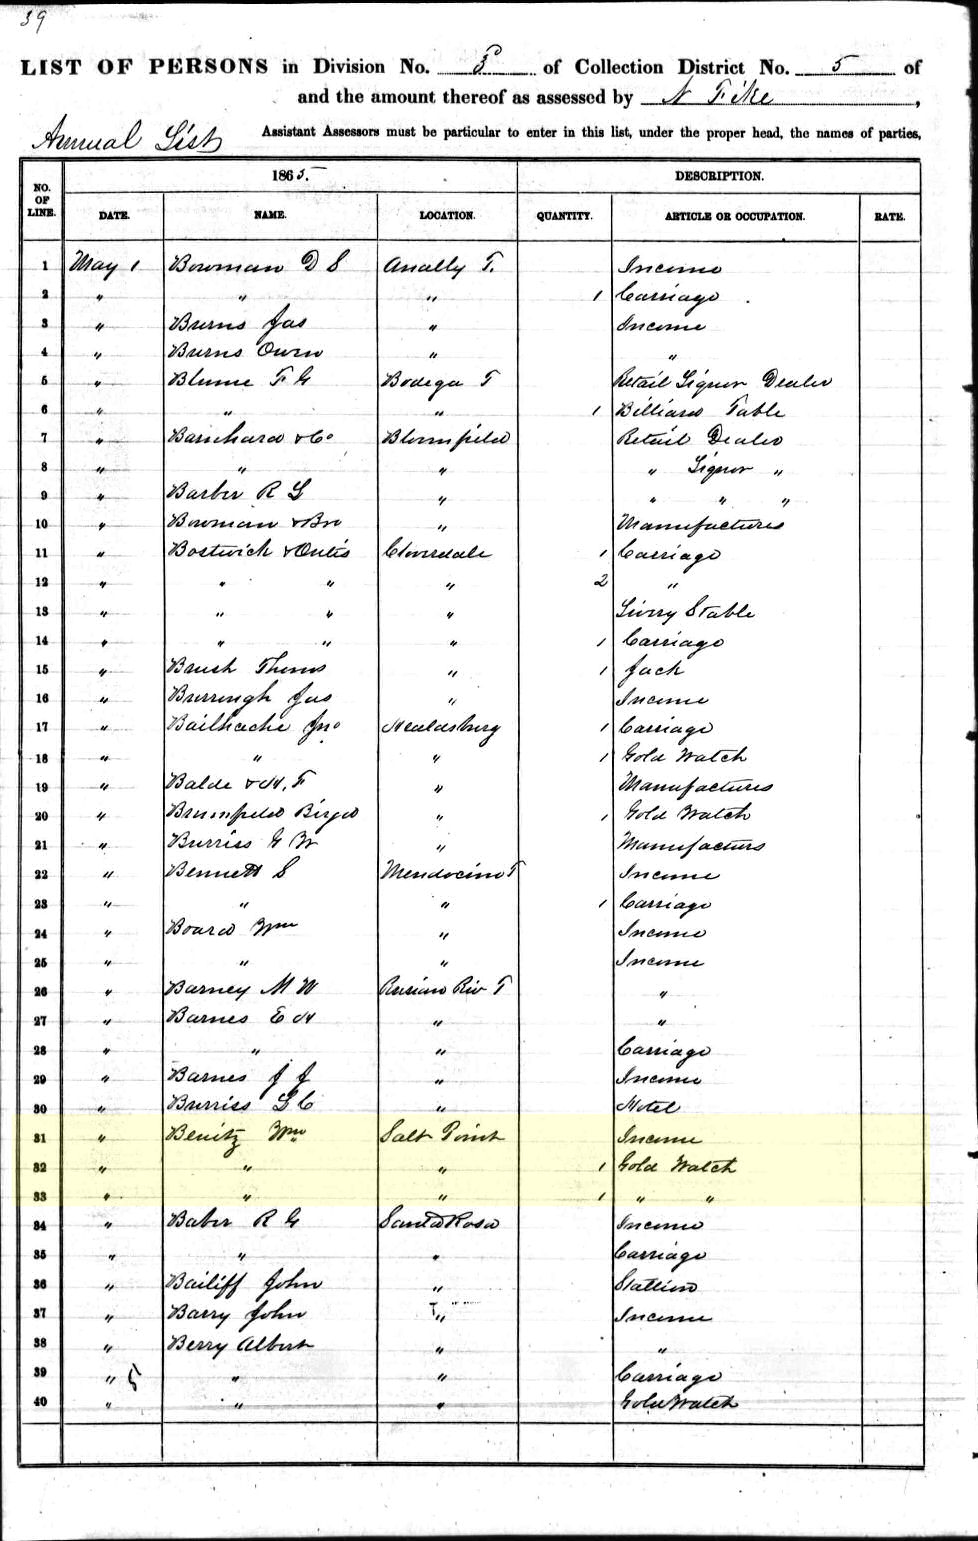 39
LIST OF PERSONS in Division No. 3 of Collection District No. 5 of
and the amount thereof as assessed by N Fike,
Annual List Assistant Assessors must be particular to enter in this list, under the proper head, the names of parties,
NO. OF LINE. 1865. DESCRIPTION.
DATE. NAME. LOCATION. QUANTITY. ARTICLE OR OCCUPATION. RATE.
1 May 1 Bowman D S Anally T. Income
2 " " " 1 Carriage
3 " Burns Jas " Income
4 " Burns Owen " "
5 " Blume F G Bodega T Retail Liquor Dealer
6 " " " 1 Billiard Table
7 " Barnhard & Co Bloomfield Retail Dealer
8 " " " " Liquor "
9 " Barber R G " " " "
10 " Bowman & Bro " Manufactures
11 " Bostwick & Cloverdale 1 Carriage
12 " " " " 2 "
13 " " " " Livry Stable
14 " " " " 1 Carriage
15 " Brush Thoms " 1 Jack
16 " Burrough Jas " Income
17 " Bailhache Jno Healdsburg 1 Carriage
18 " " " 1 Gold Watch
19 " " Manufactures
20 " Brumfield " 1 Gold Watch
21 " Burriss G W " Manufacturs
22 " Bennett S Mendocino T Income
23 " " " 1 Carriage
24 " Board Wm " Income
25 " " " Income
26 " Barney M W Russian Riv T "
27 " Barnes E H " "
28 " " " Carriage
29 " Barnes J J " Income
30 " Burriss G C " Hotel
31 " Benitz Wm Salt Point Income
32 " " " 1 Gold Watch
33 " " " 1 " "
34 " Baber R G Santa Rosa Income
35 " " " Carriage
36 " Bailiff John " Stallion
37 " Barry John " Income
38 " Berry Albert " "
39 " 5 " " Carriage
40 " " " Gold Watch